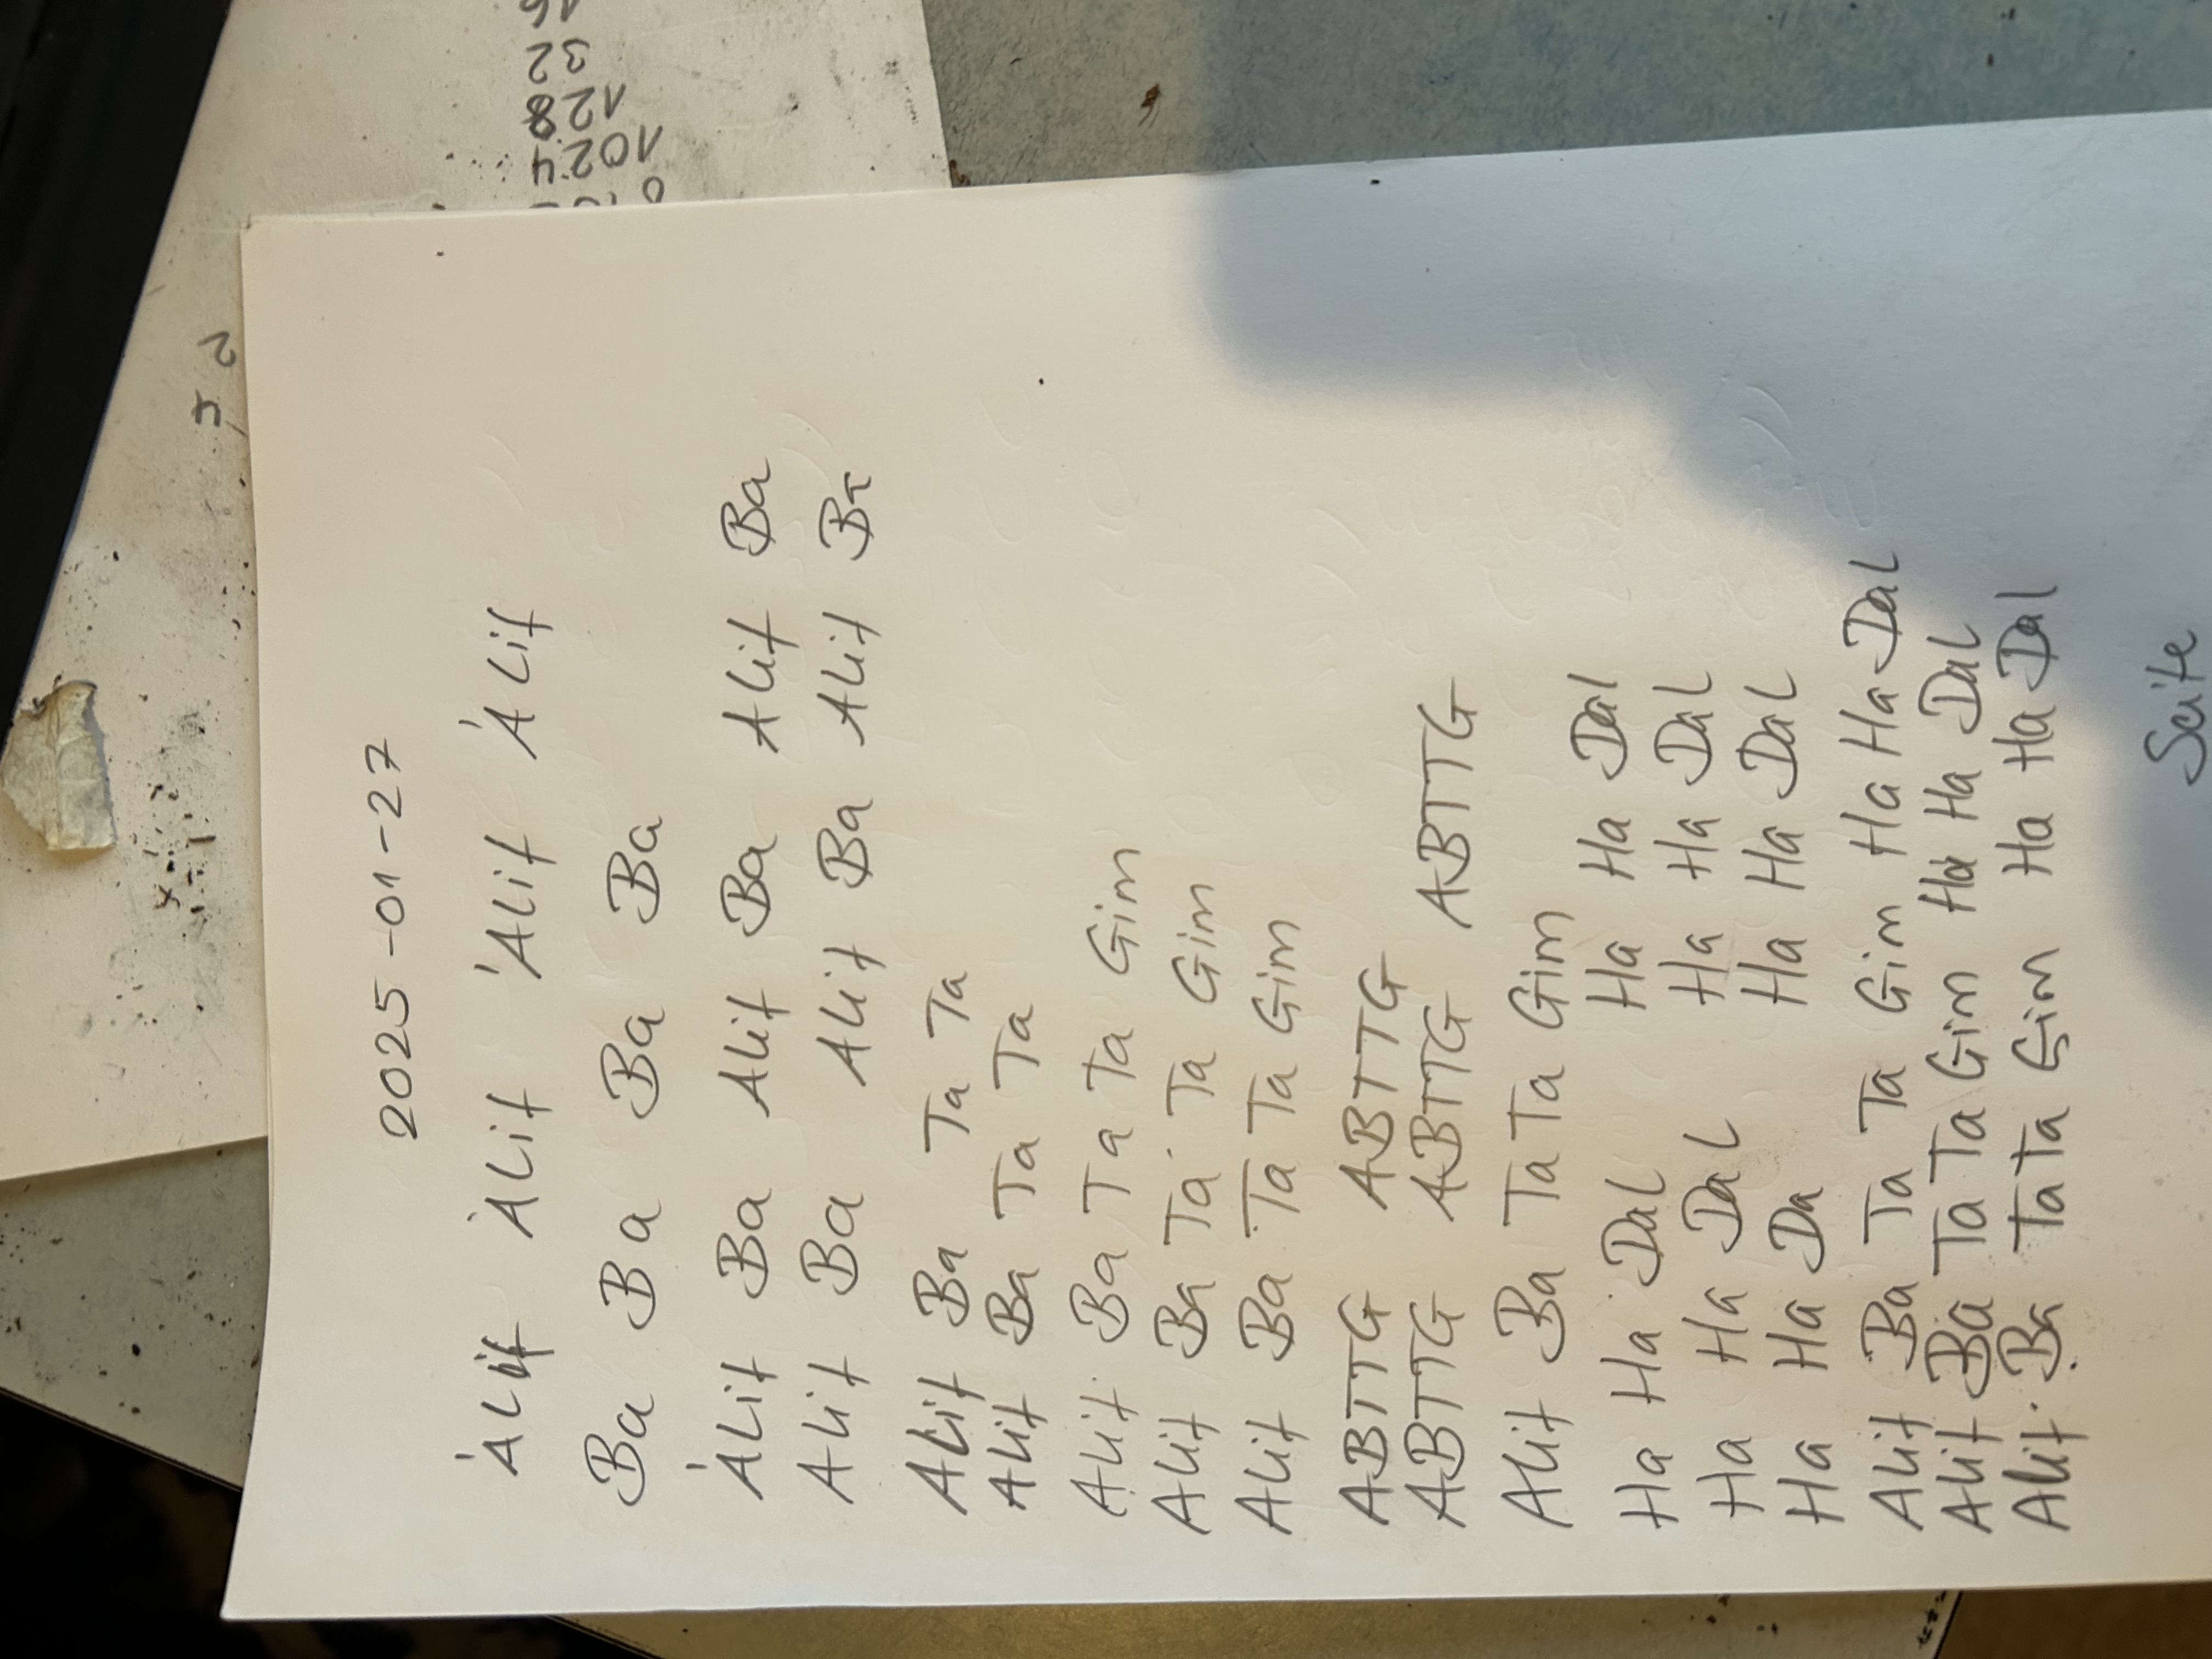 2025-01-27
'Alif 'Alif 'Alif 'Alif
Ba Ba Ba Ba
'Alif Ba Alif Ba Alif Ba
Alif Ba Alif Ba Alif Ba
Alif Ba Ta Ta
Alif Ba Ta Ta
Alif Ba Ta Ta Gim
Alif Ba Ta Ta Gim
Alif Ba Ta Ta Gim
ABTTG ABTTG
ABTTG ABTTG ABTTG
Alif Ba Ta Ta Gim
Ha Ha Dal Ha Ha Dal
Ha Ha Dal Ha Ha Dal
Ha Ha Da Ha Ha Dal
Alif Ba Ta Ta Gim Ha Ha Dal
Alif Ba Ta Ta Gim Ha Ha Dal
Alif Ba Ta Ta Gim Ha Ha Dal
Seite
4
2
1024
128
32
16